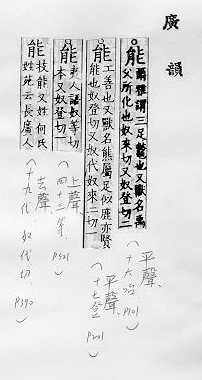 廣韻
能 爾雅謂三足鼈也又獸名禹
父所化也奴來切又奴登切二
能 工善也又獸名熊屬足似鹿亦賢
能也奴登切又奴代奴來二切一
能 夷人語奴等切
本又奴登切一
能 技能又姓何氏
姓苑云長廣人
平聲
(十六咍 P101)
平聲
(十七登 P201)
上聲
(四十三等 P321)
去聲
(十九代 奴代切 P390)